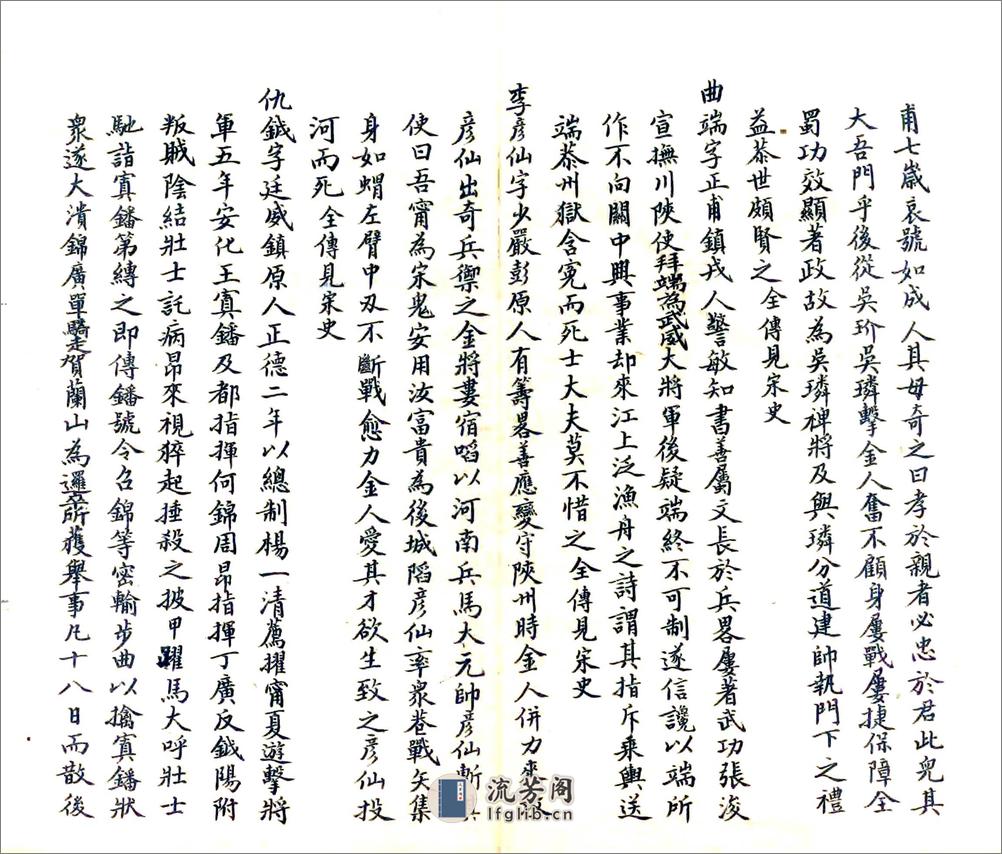 甫七歲哀號如成人其母奇之曰孝於親者必忠於君此兒其
大吾門乎後從吳玠吳璘擊金人奮不顧身屢戰屢捷保障全
蜀功效顯著政故為吳璘裨將及與璘分道建帥執門下之禮
益恭世頗賢之全傳見宋史
曲端字正甫鎮戎人警敏知書善屬文長於兵畧屢著武功張浚
宣撫川陝使拜端為武威大將軍後疑端終不可制遂信讒以端所
作不向關中興事業却來江上泛漁舟之詩謂其指斥乘輿送
端恭州獄含冤而死士大夫莫不惜之全傳見宋史
李彥仙字少嚴彭原人有籌畧善應變守陝州時金人併力來
彥仙出奇兵禦之金將婁宿啗以河南兵馬大元帥彥仙斬其
使曰吾甯為宋鬼安用汝富貴為後城陷彥仙率衆巷戰矢集
身如蝟左臂中刄不斷戰愈力金人愛其才欲生致之彥仙投
河而死全傳見宋史
仇鉞字廷威鎮原人正德二年以總制楊一清薦擢甯夏遊擊將
軍五年安化王寘鐇及都指揮何錦周昂指揮丁廣反鉞陽附
叛賊陰結壯士託病昂來視猝起捶殺之披甲躍馬大呼壯士
馳詣寘鐇第縛之即傳鐇號令召錦等密輸步曲以擒寘鐇狀
衆遂大潰錦廣單騎走賀蘭山為邏卒所獲舉事凡十八日而散後
流芳阁
lfglib.cn